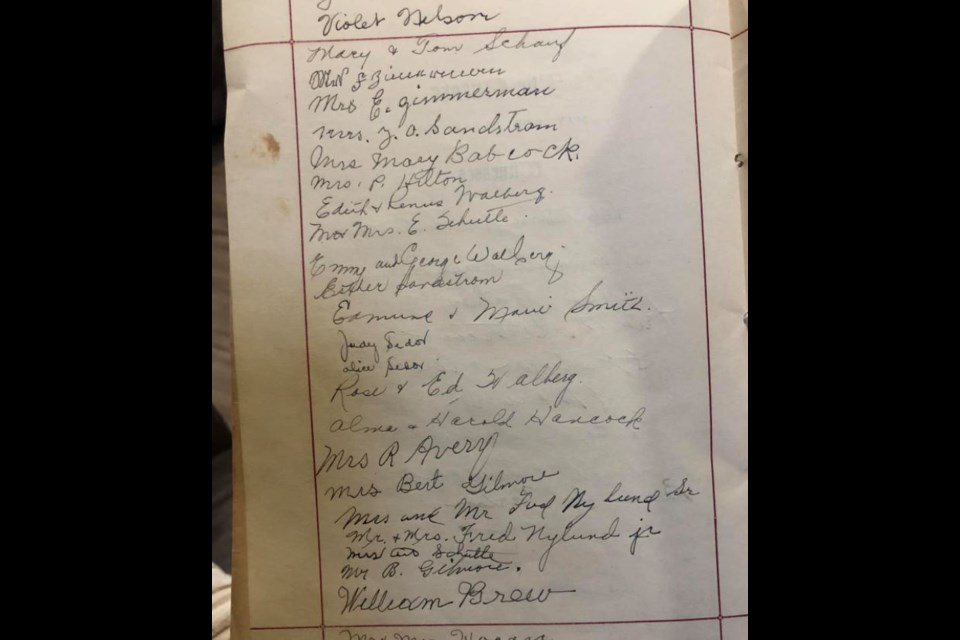 Violet Nelson
Mary & Tom Schauf
Mr F Zimmerman
Mrs E. Zimmerman
Mrs. J. O. Sandstrom
Mrs Mary Babcock.
Mrs. P. Hilton
Edith & Renus Walberg.
Mr & Mrs. E. Schutte.
Emmy and George Walberg
Esther Sandstrom
Edmund & Marie Smith.
Judy Sedor
Alice Sedor
Rose & Ed Walberg.
Alma & Harold Hancock
Mrs R Avery
Mrs Bert Gilmore
Mrs and Mr Fred Nylund Sr
Mr. & Mrs. Fred Nylund jr
Schutte
Mr B. Gilmore.
William Brew